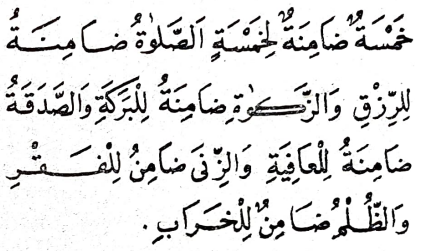 خَمْسَةٌ ضَامِنَةٌ لِخَمْسَةٍ اَلصَّلٰوةُ ضَامِنَةٌ
لِلرِّزْقِ وَالزَّكٰوةِ ضَامِنَةٌ لِلْبَرَكَةِ وَالصَّدَقَةُ
ضَامِنَةٌ لِلْعَافِيَةِ وَالزِّنَى ضَامِنٌ لِلْفَقْرِ
وَالظُّلْمُ ضَامِنٌ لِلْخَرَابِ.